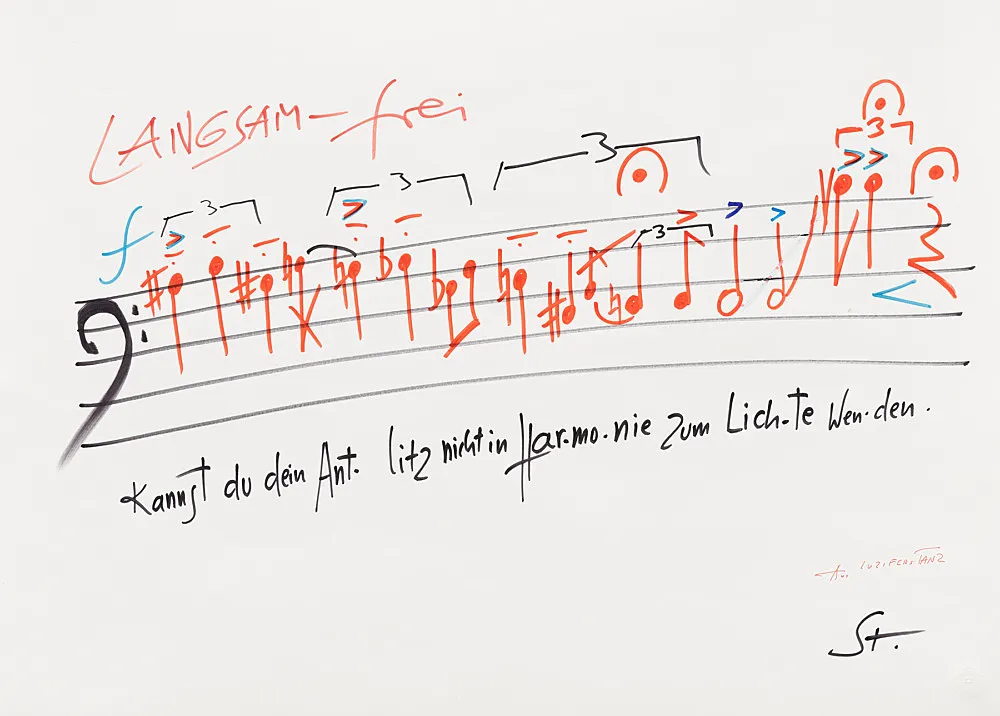 LANGSAM – frei
3 3 3
3
f 3
Kannst du dein Ant- litz nicht in Har-mo-nie zum Lich-te wen-den.
Aus LUZIFERs TANZ
St.